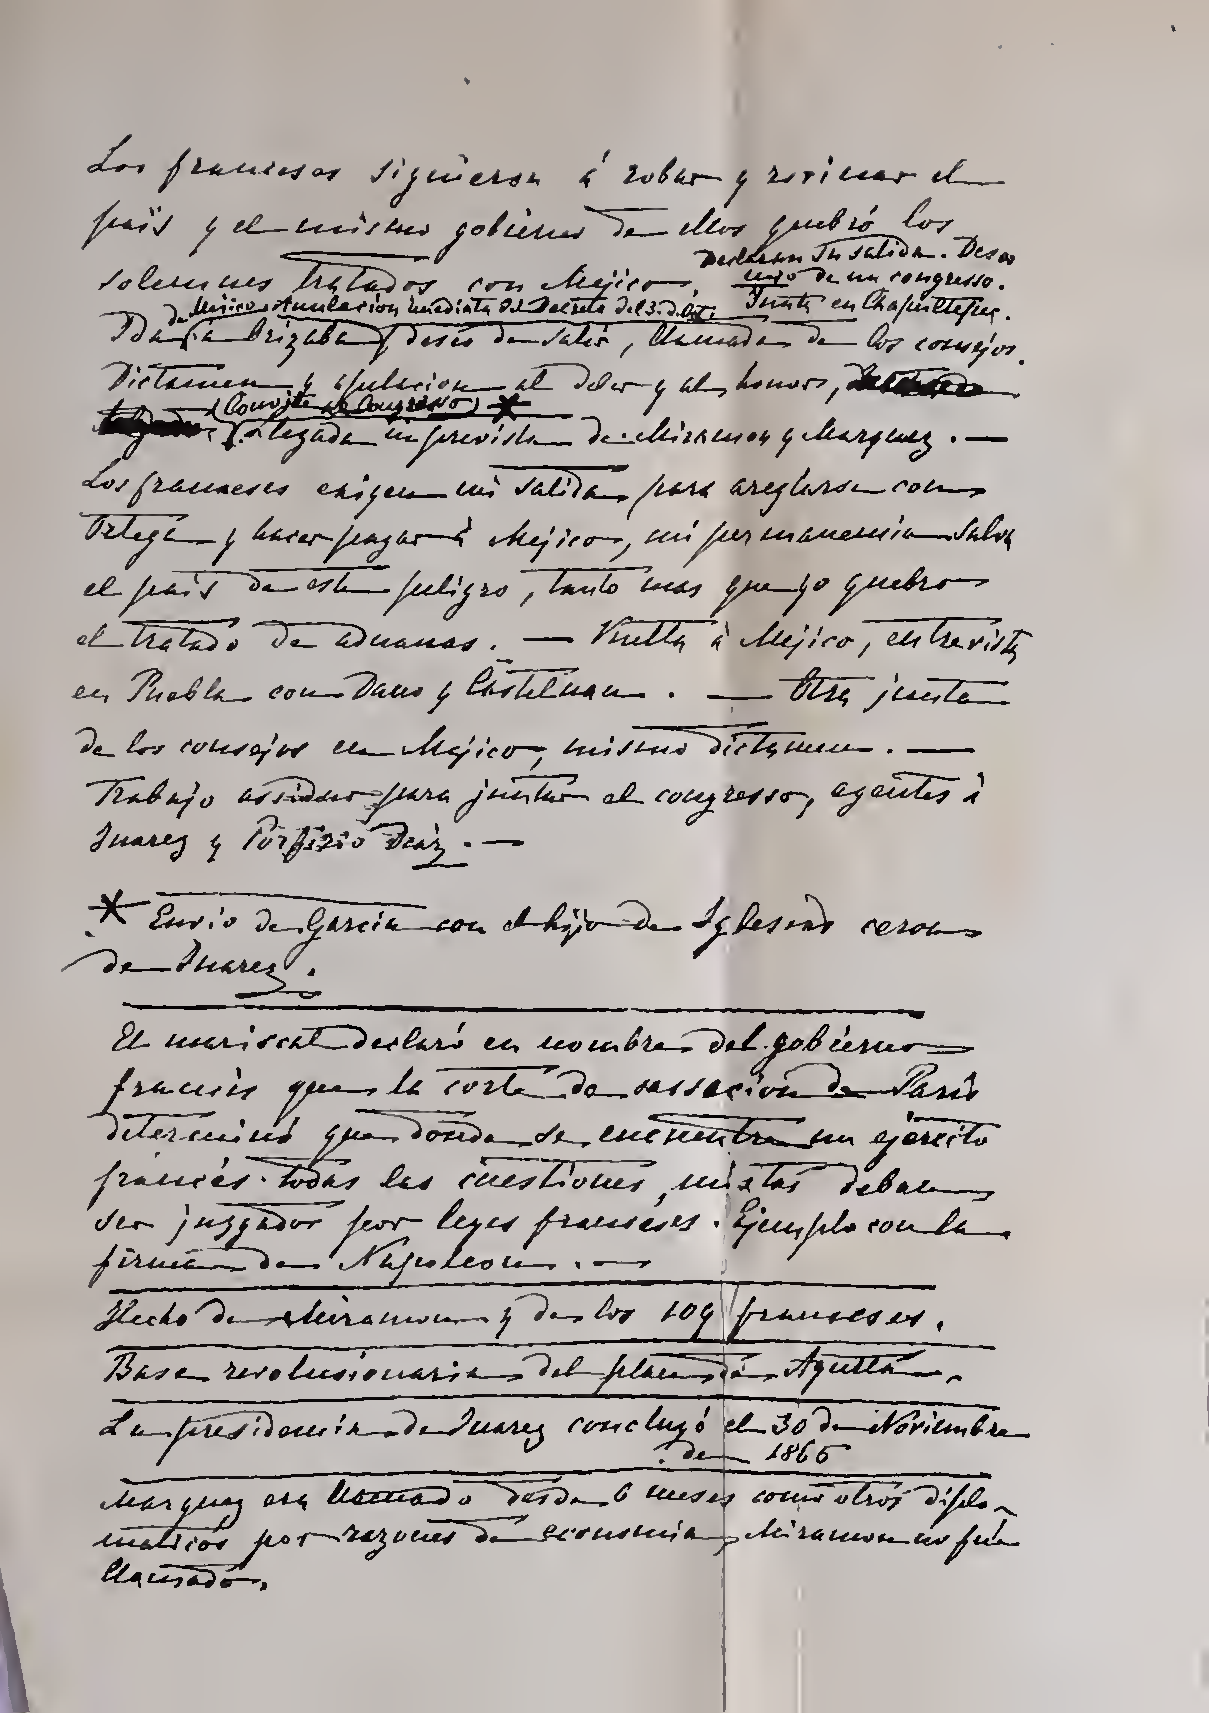 Los franceses siguieron á robar y arruinar el
país y el mismo gobierno de ellos quebró los
solemnes tratados con Mejico.
Declaran su salida. Deseo
mio de un congresso.
Junta en Chapultepec.
de Mejico Anulacion inmediata del Decreto del 3. d. Oct.
Ida a Orizaba, deseo de salir, llamada de los consejos.
Dictamen y apelacion al deber y al honor,
(Convite al Congresso) *
llegada imprevista de Miramon y Marquez. —
Los franceses exigen mi salida para areglarse con
Ortega y hacer pagar à Mejico, mi permanencia salva
el país de este peligro, tanto mas que yo quebro
el tratado de aduanas. — Vuelta à Mejico, entrevista
en Puebla con Dano y Castelnau. — Otra junta
de los consejos en Mejico, mismo dictamen. —
Trabajo assiduo para juntar el congresso, agentes à
Juarez y Porfirio Diaz. —
* Envio de Garcia con el hijo de Iglesias cerca
de Juarez.
El mariscal declaró en nombre del gobierno
francés que la corte de cassacion de Paris
determinó que donde se encuentra un ejército
francés todas las cuestiones mixtas deben
ser juzgados por leyes franceses. Ejemplo con la
firma de Napoleon. —
Hecho de Miramon y de los 109 franceses.
Base revolusionaria del plan de Ayutla.
La presidencia de Juarez concluyó el 30 de Noviembre
de 1865
Marquez era llamado desde 6 meses como otros diplo-
maticos por razones de economia, Miramon no fué
llamado.